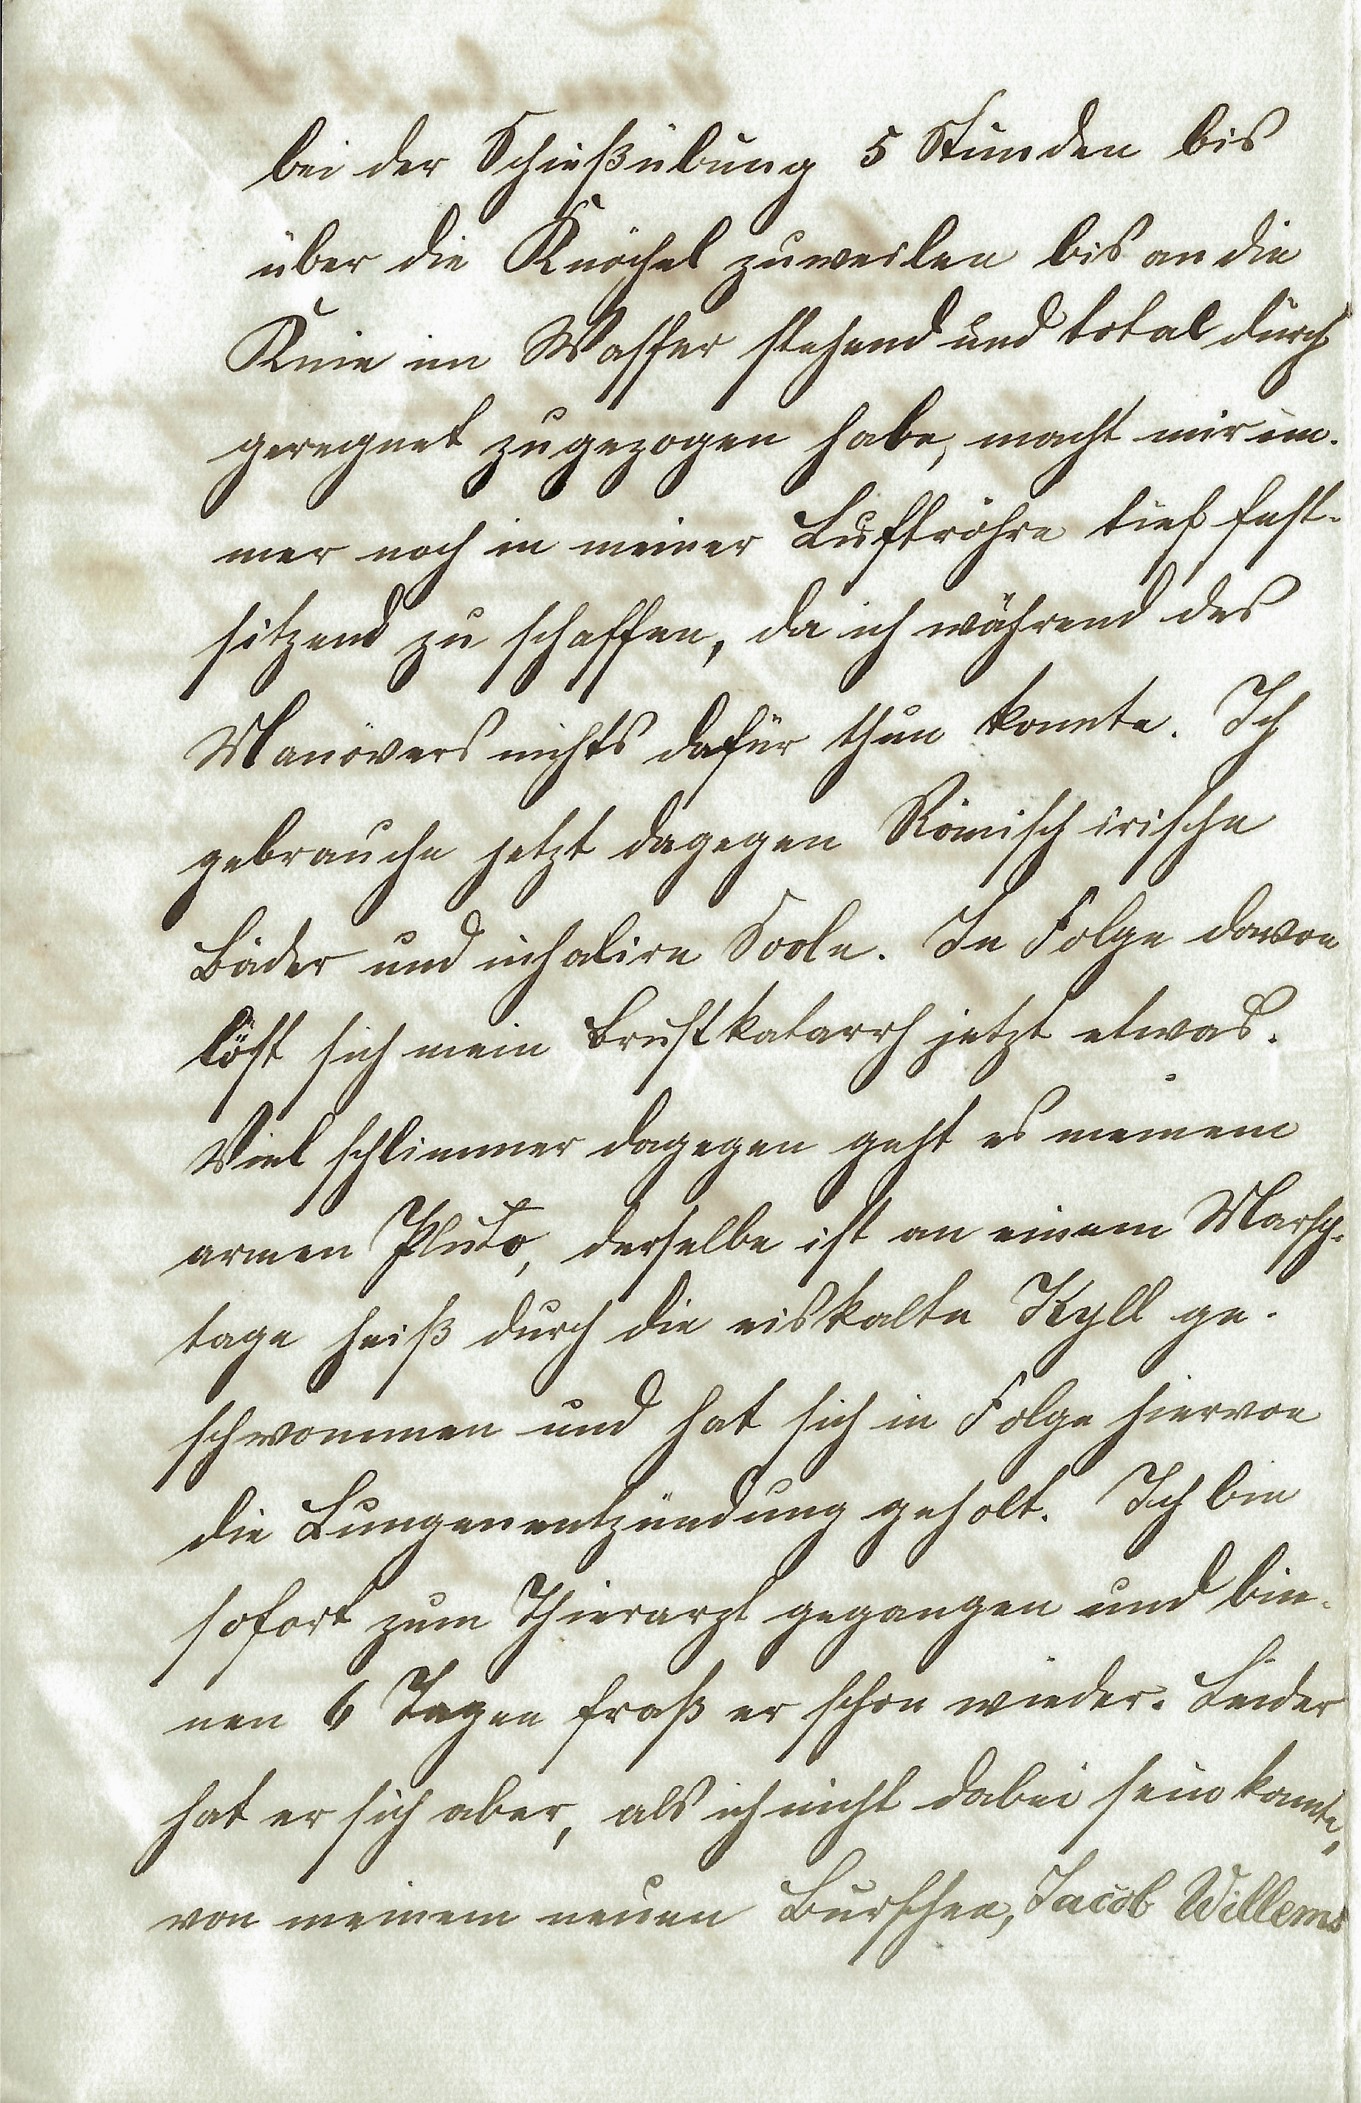 bei der Schießübung 5 Stunden bis
über die Knöchel zuweilen bis an die
Knie im Wasser stehend und total durch
geregnet zugezogen habe, macht mir im-
mer noch in meiner Luftröhre tief fest-
sitzend zu schaffen, da ich während des
Manövers nichts dafür thun konnte. Ich
gebrauche jetzt dagegen Römisch irische
Bäder und inhalire Soole. In Folge davon
löst sich mein Brustkatarrh jetzt etwas.
Viel schlimmer dagegen geht es meinem
armen Pluto, derselbe ist an einem Marsch-
tage heiß durch die eiskalte Kyll ge-
schwommen und hat sich in Folge hiervon
die Lungenentzündung geholt. Ich bin
sofort zum Thierarzt gegangen und bin-
nen 6 Tagen fraß er schon wieder. Leider
hat er sich aber, als ich nicht dabei sein konnte,
von meinem neuen Burschen, Jacob Willems